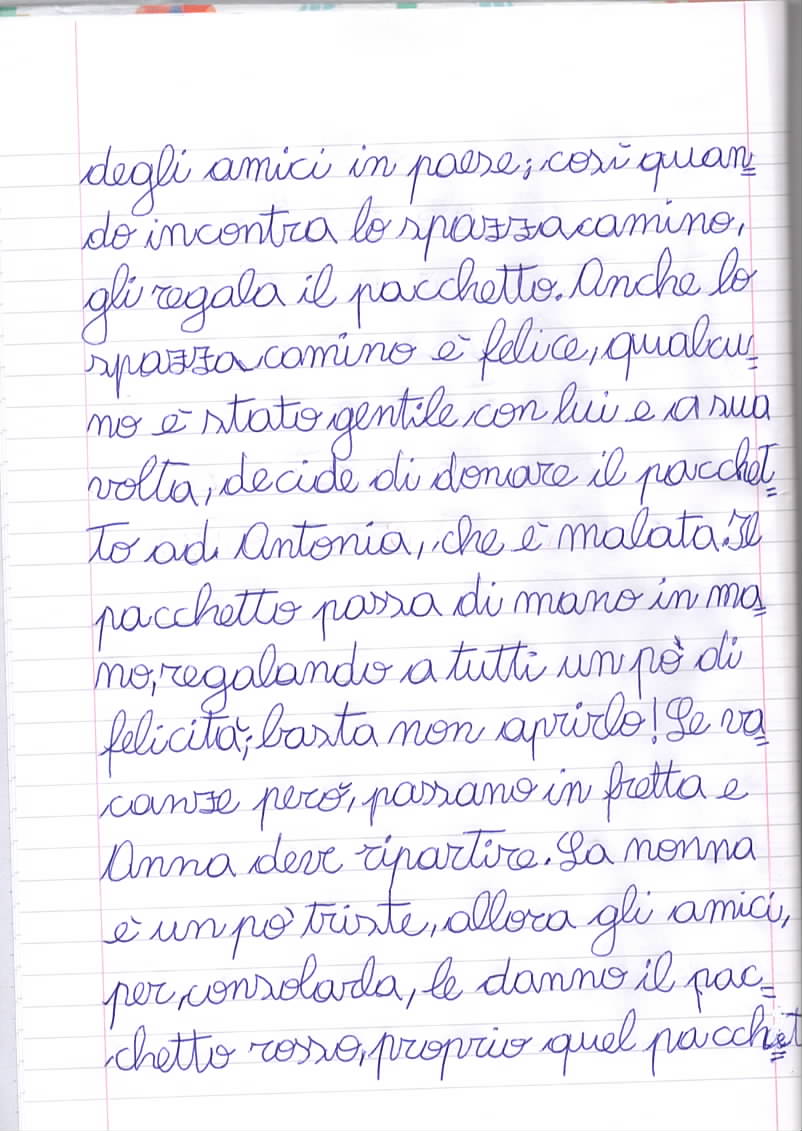 degli amici in paese; così quan=
do incontra lo spazzacamino,
gli regala il pacchetto. Anche lo
spazzacamino è felice, qualcu=
no è stato gentile con lui e a sua
volta, decide di donare il pacchet=
to ad Antonia, che è malata. Il
pacchetto passa di mano in ma=
no, regalando a tutti un pò di
felicità; basta non aprirlo! Le va=
canze però, passano in fretta e
Anna deve ripartire. La nonna
è un pò triste, allora gli amici,
per consolarla, le danno il pac=
chetto rosso, proprio quel pacchet=